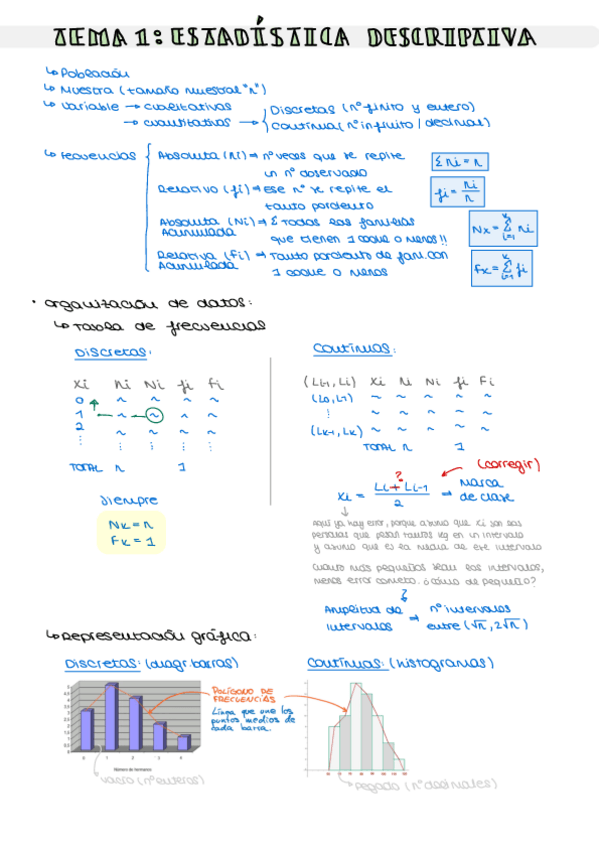 TEMA 1: ESTADÍSTICA DESCRIPTIVA
↳ Población
↳ Muestra (tamaño muestral "n")
↳ Variable → cualitativas
→ cuantitativas → { Discretas (nº finito y entero)
Continua (nº infinito / decimal)
↳ Frecuencias { Absoluta (ni) → nº veces que se repite
un nº observado
Σ ni = n
Relativo (fi) → Ese nº se repite el
tanto porciento
fi = ni / n
Absoluta (Ni) → Σ todas las familias
Acumulada que tienen 1 coche o menos!!
Nk = Σ ni
k
i=1
Relativa (Fi) → Tanto porciento de fami. con
Acumulada 1 coche o menos
Fk = Σ fi
k
i=1
· Organización de datos:
↳ Tabla de frecuencias
Discretas:
Xi ni Ni fi Fi
0
1
2
⋮ ⋮ ⋮ ⋮ ⋮
TOTAL n 1
siempre
Nk = n
Fk = 1
Continuas:
(Li-1, Li) Xi ni Ni fi Fi
(L0, L1)
⋮
(Lk-1, Lk)
TOTAL n 1
(corregir)
?
Xi = Li + Li-1 / 2 → Marca
de clase
aquí ya hay error, porque asumo que xi son las
personas que pesan tantos kg en un intervalo
y asumo que es la media de ese intervalo
cuanto más pequeños sean los intervalos,
menos error cometo. ¿cómo de pequeño?
Amplitud de
intervalos → nº intervalos
entre (√n, 2√n)
↳ Representación gráfica:
Discretas: (diagr. barras)
POLÍGONO DE
FRECUENCIAS
Línea que une los
puntos medios de
cada barra.
0 1 2 3 4
Número de hermanos
vacío (nº enteros)
Continuas: (histogramas)
pegado (nº decimales)